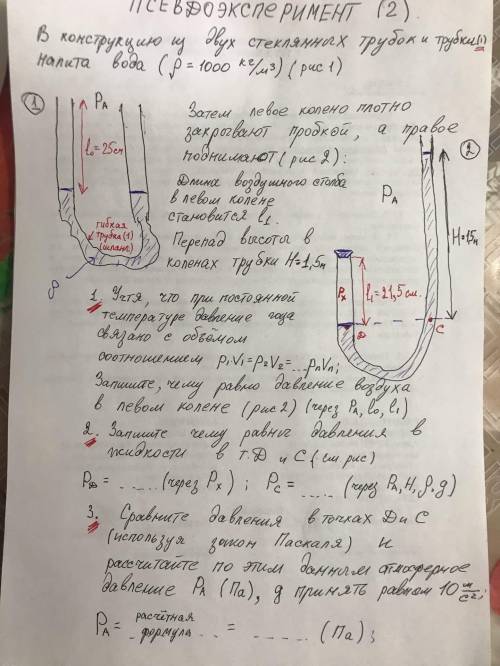 ПСЕВДОЭКСПЕРИМЕНТ (2).
В конструкцию из двух стеклянных трубок и трубки (1)
налита вода (ρ = 1000 кг/м³) (рис 1)
1
PA
l₀ = 25см
гибкая
трубка (1)
(шланг)
ρ
Затем левое колено плотно
закрывают пробкой, а правое
поднимают (рис 2):
Длина воздушного столба
в левом колене
становится l₁.
Перепад высоты в
коленах трубки H = 1,5м
2
PA
H = 1,5м
Px
l₁ = 21,5 см.
D
C
1. Учтя, что при постоянной
температуре давление газа
связано с объёмом
соотношением p₁V₁ = p₂V₂ = ...pnVn;
Запишите, чему равно давление воздуха
в левом колене (рис 2) (через PA, l₀, l₁)
2. Запишите чему равны давления в
жидкости в т. D и C (см. рис)
PD = ..... (через Px); PC = ..... (через PA, H, ρ, g)
3. Сравните давления в точках D и C
(используя закон Паскаля) и
рассчитайте по этим данным атмосферное
давление PA (Па), g принять равном 10 м/с²;
PA = расчётная формула .. = ....... (Па);